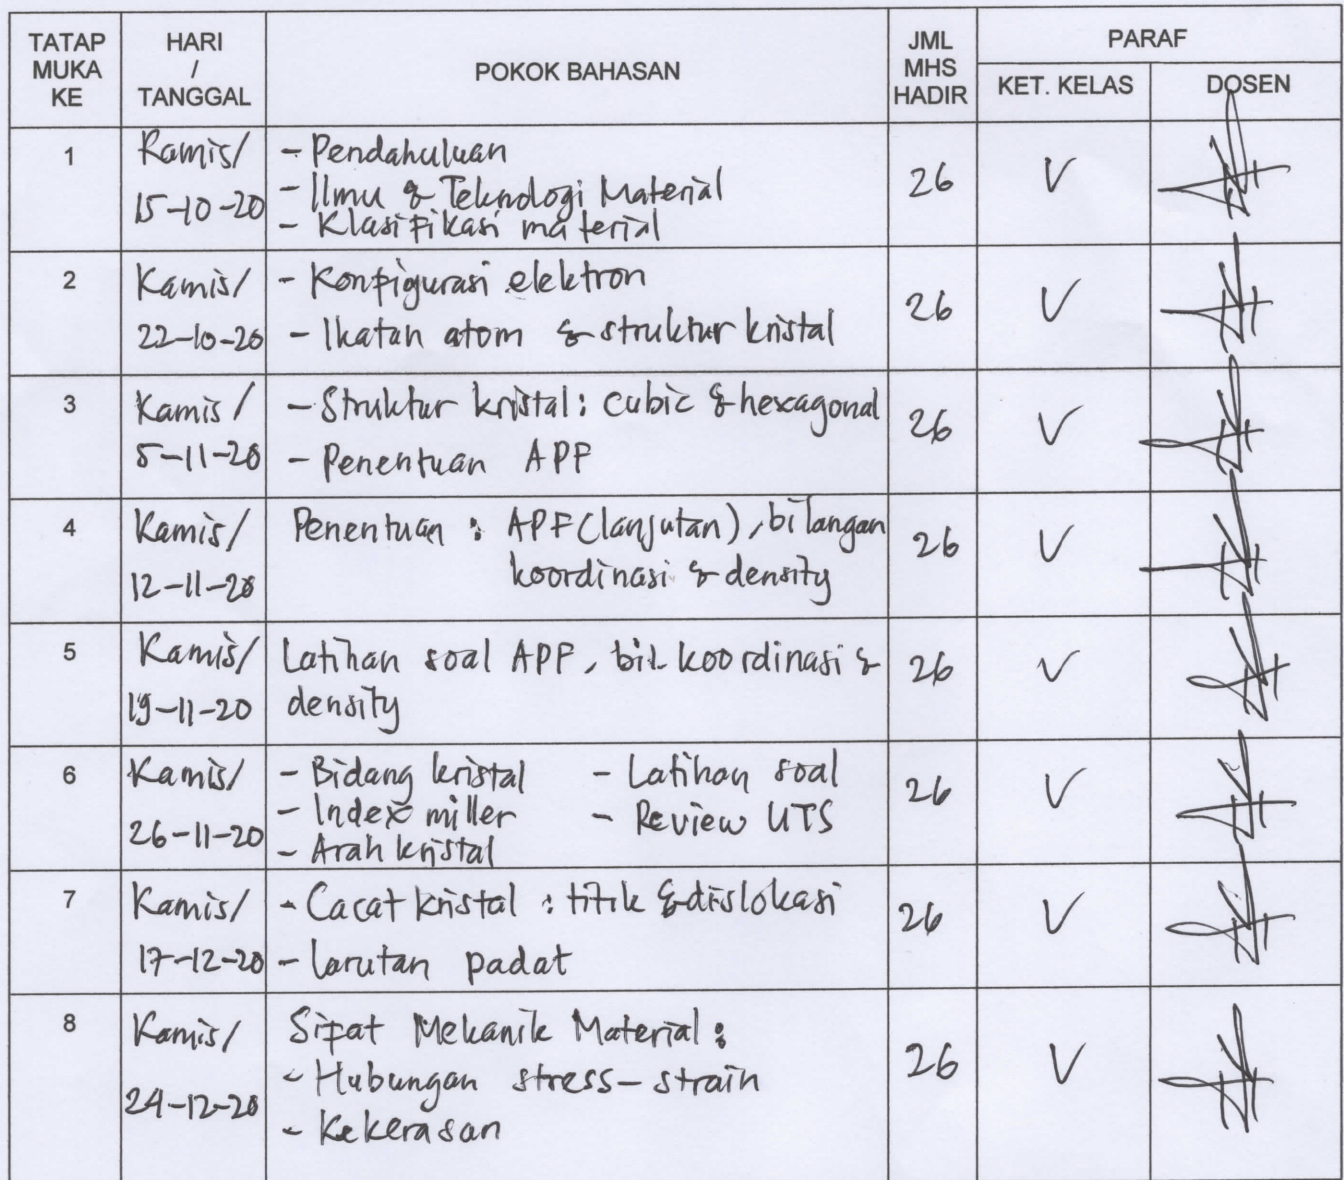 TATAP MUKA KE | HARI / TANGGAL | POKOK BAHASAN | JML MHS HADIR | PARAF
KET. KELAS | DOSEN
1 | Kamis/ 15-10-20 | - Pendahuluan | 26 | V
- Ilmu & Teknologi Material
- Klasifikasi material
2 | Kamis/ 22-10-20 | - Konfigurasi elektron | 26 | V
- Ikatan atom & struktur kristal
3 | Kamis/ 5-11-20 | - Struktur kristal: cubic & hexagonal | 26 | V
- Penentuan APF
4 | Kamis/ 12-11-20 | Penentuan : APF (lanjutan), bilangan | 26 | V
koordinasi & density
5 | Kamis/ 19-11-20 | Latihan soal APF, bil. koordinasi & | 26 | V
density
6 | Kamis/ 26-11-20 | - Bidang kristal - Latihan soal | 26 | V
- Index miller - Review UTS
- Arah kristal
7 | Kamis/ 17-12-20 | - Cacat kristal : titik & dislokasi | 26 | V
- Larutan padat
8 | Kamis/ 24-12-20 | Sifat Mekanik Material : | 26 | V
- Hubungan stress-strain
- Kekerasan